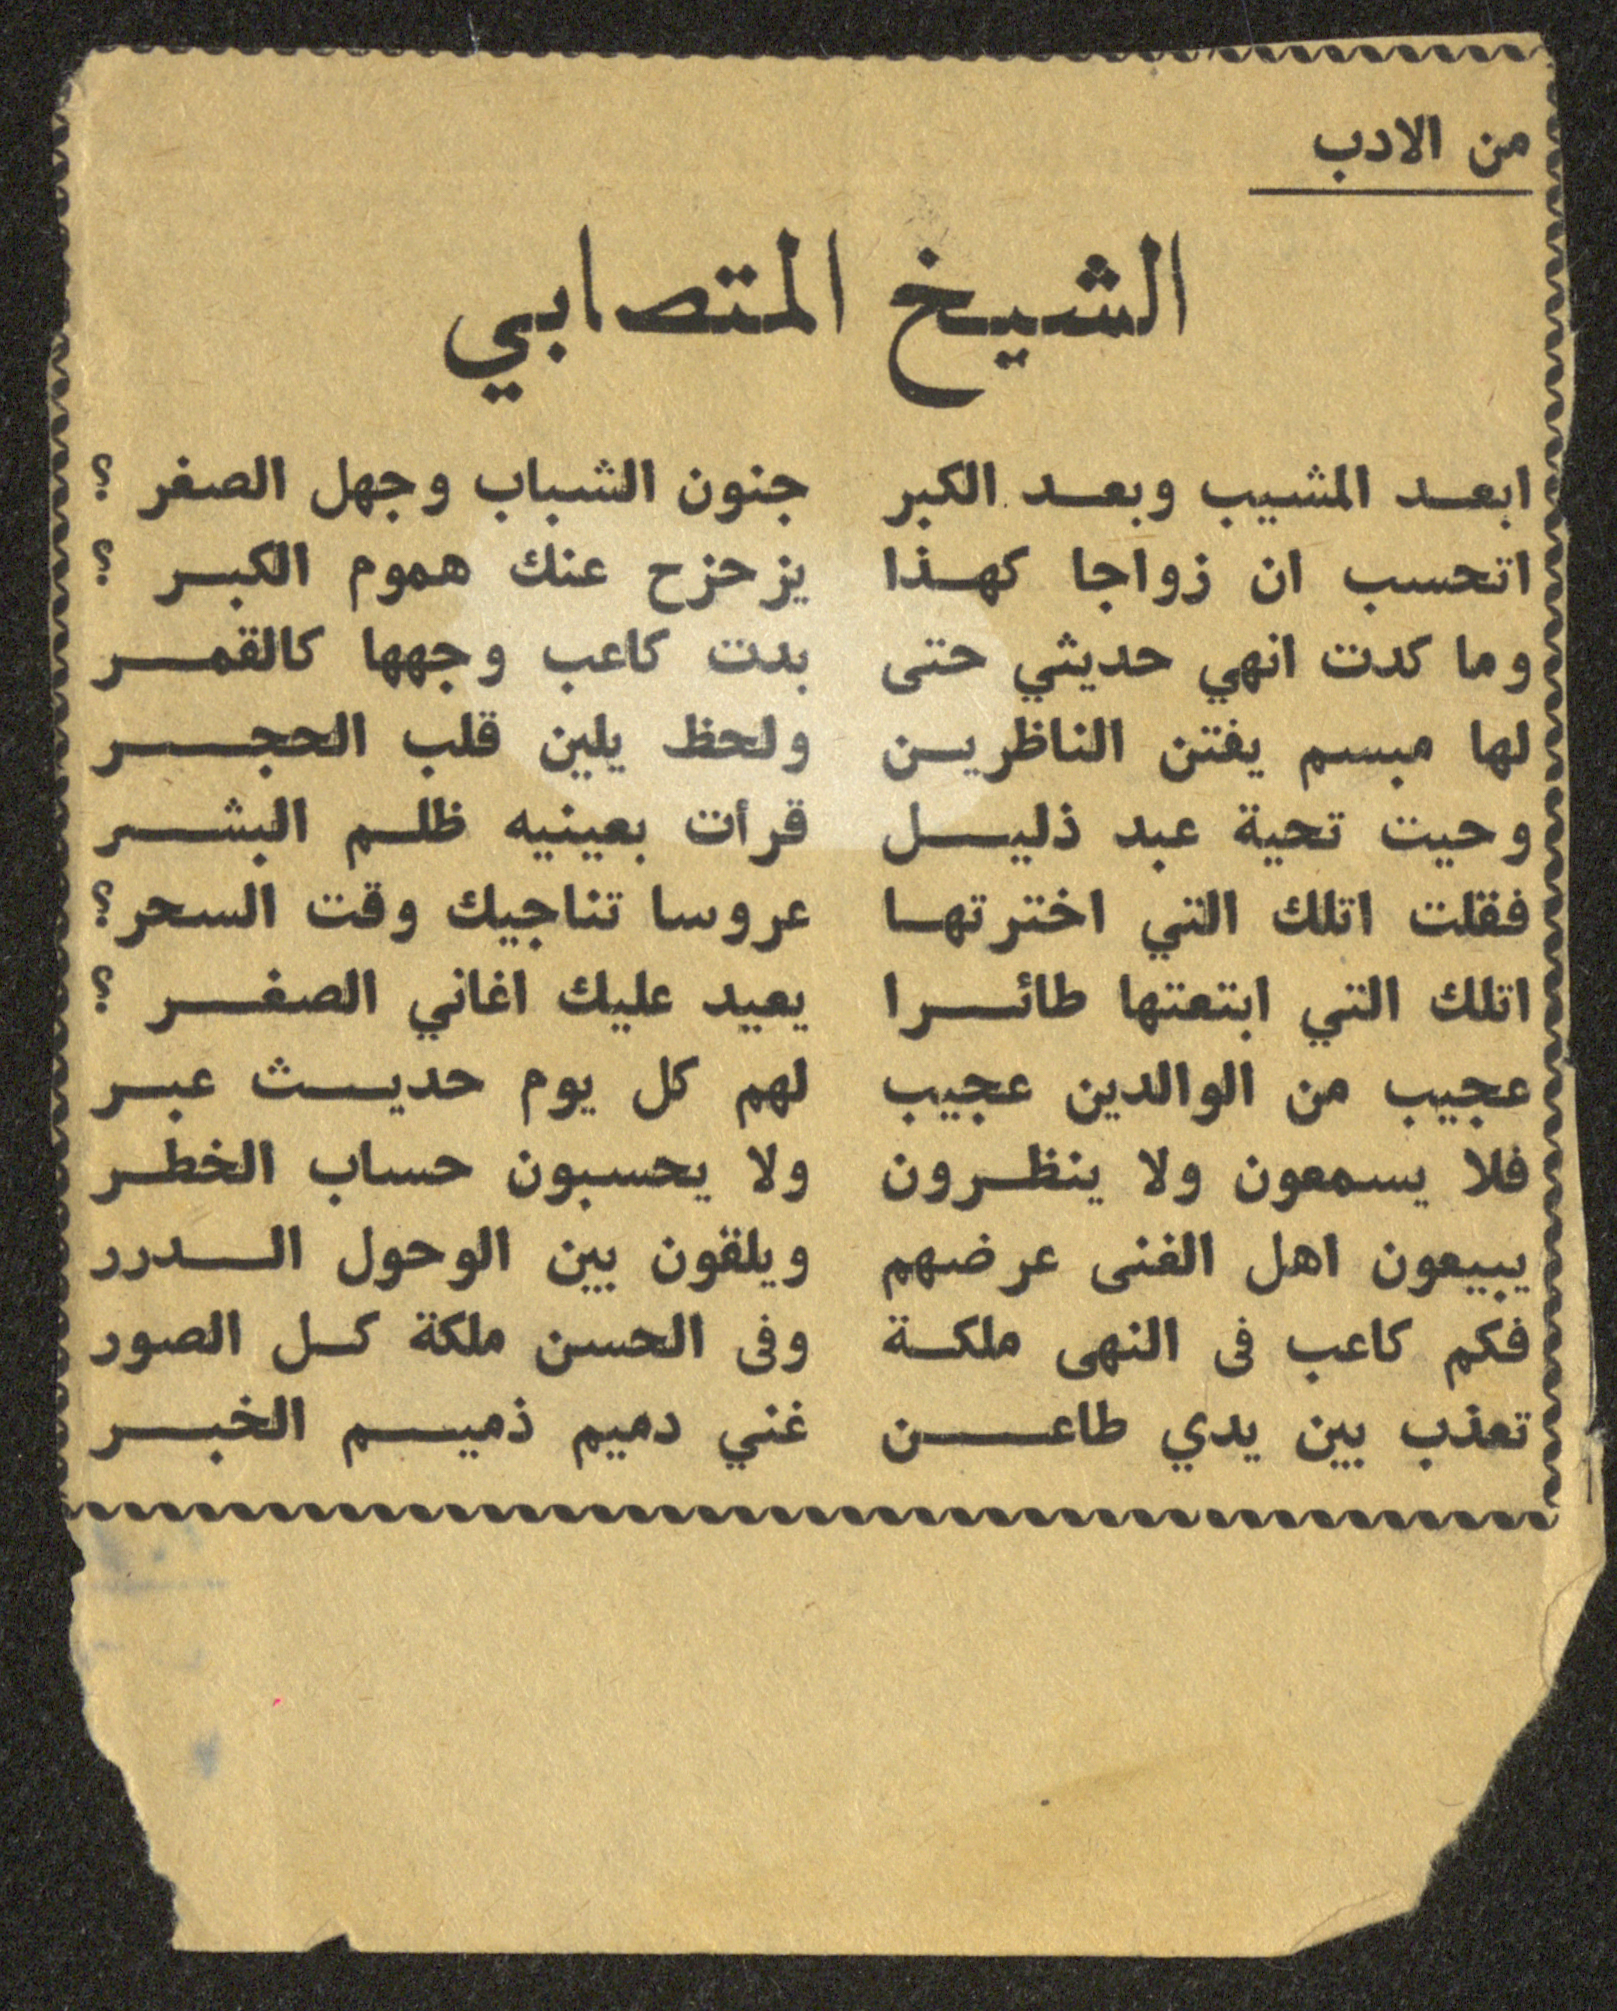 من الادب
الشيخ المتصابي
ابعد المشيب وبعد الكبر جنون الشباب وجهل الصغر ؟
اتحسب ان زواجا كهذا يزحزح عنك هموم الكبر ؟
وما كدت انهي حديثي حتى بدت كاعب وجهها كالقمر
لها مبسم يفتن الناظرين ولحظ يلين قلب الحجر
وحيت تحية عبد ذليل قرأت بعينيه ظلم البشر
فقلت اتلك التي اخترتها عروسا تناجيك وقت السحر؟
اتلك التي ابتعتها طائرا يعيد عليك اغاني الصغر ؟
عجيب من الوالدين عجيب لهم كل يوم حديث عبر
فلا يسمعون ولا ينظرون ولا يحسبون حساب الخطر
يبيعون اهل الغنى عرضهم ويلقون بين الوحول الدرر
فكم كاعب فى النهى ملكة وفى الحسن ملكة كل الصور
تعذب بين يدي طاعن غني دميم ذميم الخبر